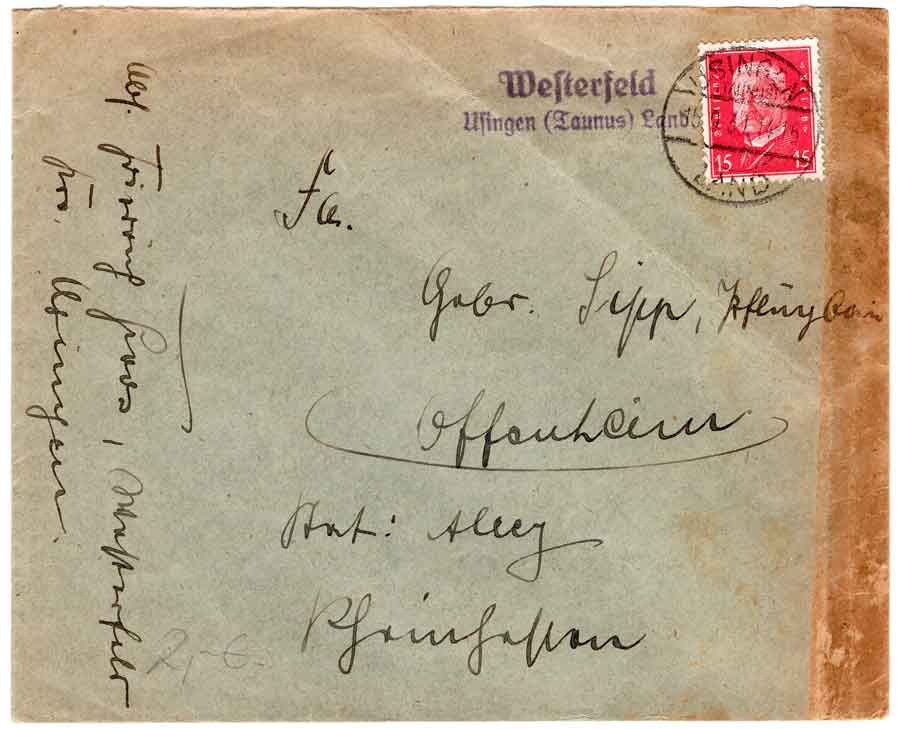 Westerfeld
Usingen (Taunus) Land
USINGEN
LAND
15 15
Fa.
Gebr. Sipp, Pflugbau
Offenheim
Stat: Alzey
Rheinhessen
Abs. Friedrich Haas, Westerfeld
Krs. Usingen.
2,- €